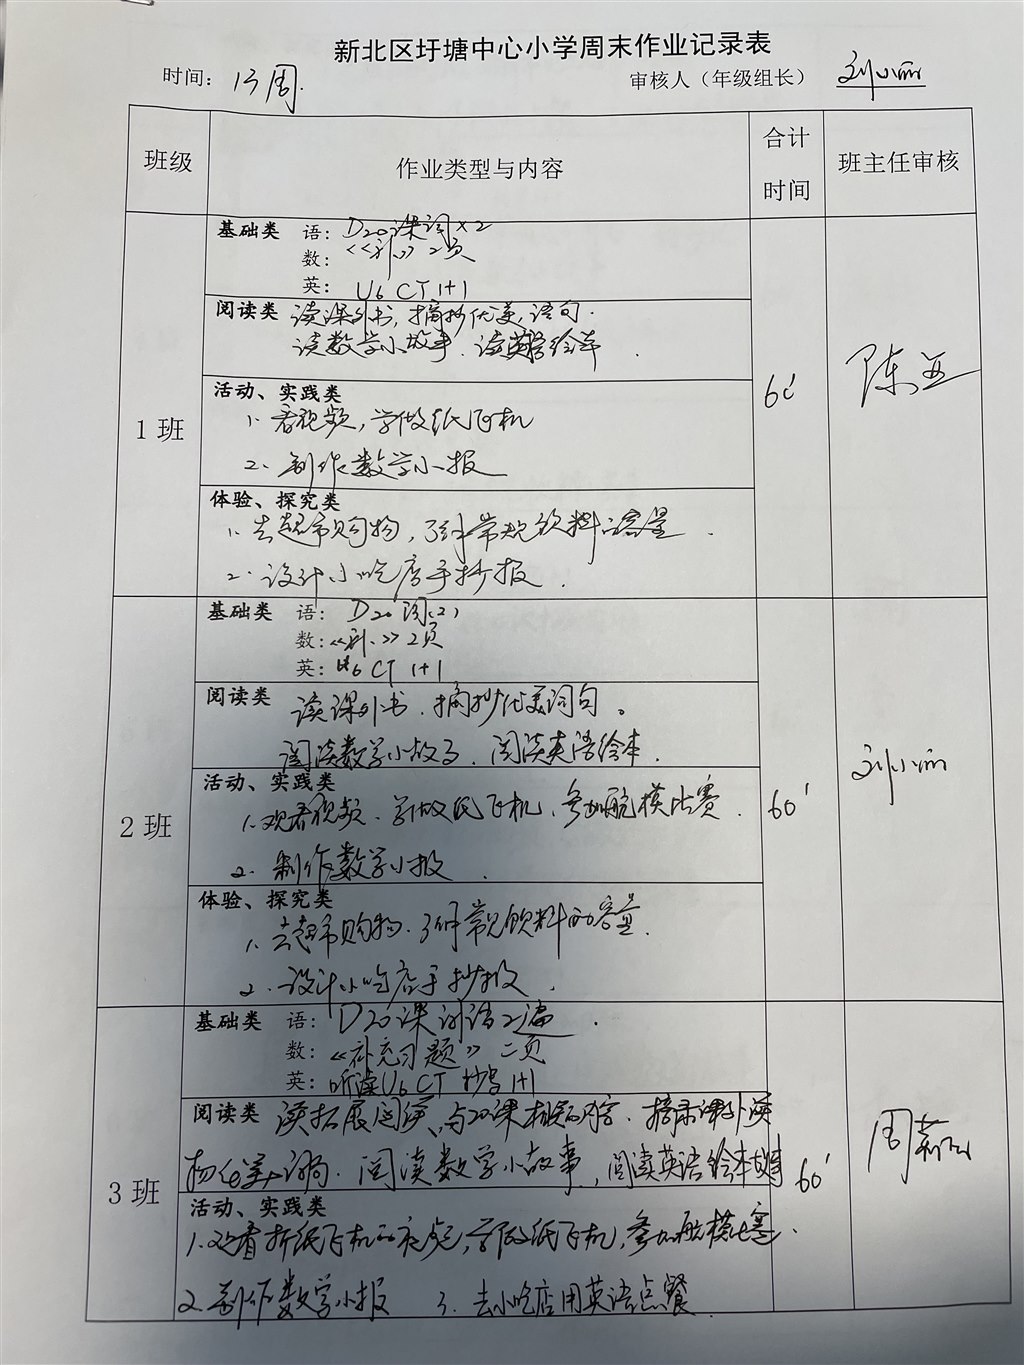 新北区圩塘中心小学周末作业记录表
时间：13周. 审核人（年级组长） 刘小丽
班级 作业类型与内容 合计时间 班主任审核
1班
基础类 语：D20课词×2
数：《补》2页
英：U6 CT 1+1
阅读类 读课外书，摘抄优美语句.
读数学小故事.读英语绘本.
活动、实践类
1.看视频，学做纸飞机
2.制作数学小报
体验、探究类
1.去超市购物，了解常见饮料的容量.
2.设计小吃店手抄报.
60'
陈亚
2班
基础类 语：D20词(2)
数：《补.》2页
英：U6 CT 1+1
阅读类 读课外书.摘抄优美词句。
阅读数学小故事.阅读英语绘本.
活动、实践类
1.观看视频、学做纸飞机、参加航模比赛.
2.制作数学小报.
体验、探究类
1.去超市购物.了解常见饮料的容量.
2.设计小吃店手抄报.
60'
刘小丽
3班
基础类 语：D20课词语2遍.
数：《补充习题》二页
英：听读U6 CT 抄写1+1
阅读类 读拓展阅读、与20课相关的内容.摘录课外读
物优美词句.阅读数学小故事，阅读英语绘本故事
活动、实践类
1.观看折纸飞机的视频，学做纸飞机，参加航模比赛.
2.制作数学小报 3.去小吃店用英语点餐.
60'
周